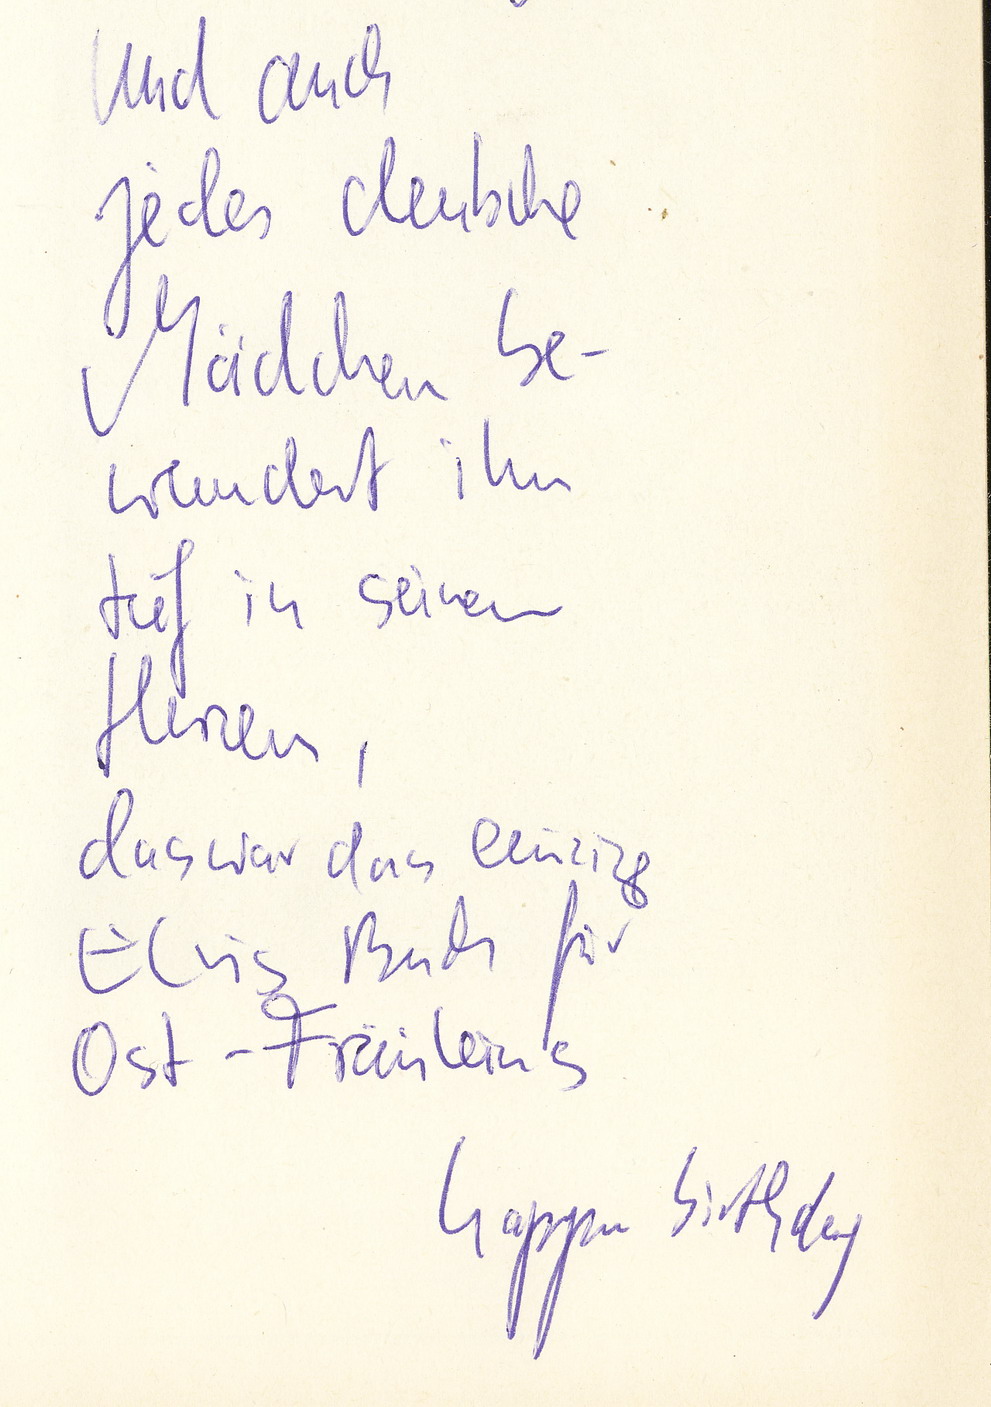 Und auch
jedes deutsche
Mädchen be-
wundert ihn
tief in seinem
Herzen,
das war das einzige
Elvis Buch für
Ost-Fräuleins
happy birthday